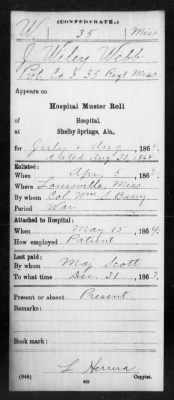 (CONFEDERATE.)
W 35 Miss
J Wiley Webb
Pvt Co. I 35 Regt Miss
Appears on
Hospital Muster Roll
of
Hospital,
Shelby Springs, Ala.,
for July & Aug, 186
dated Aug 31, 1864
Enlisted:
When Apr 5, 186
Where Louisville, Miss
By whom Col. Wm S. Barry
Period War
Attached to Hospital:
When May 15, 1864.
How employed Patient
Last paid:
By whom Maj Scott
To what time Dec 31, 1863
Present or absent Present
Remarks:
Book mark:
(646) Copyist.